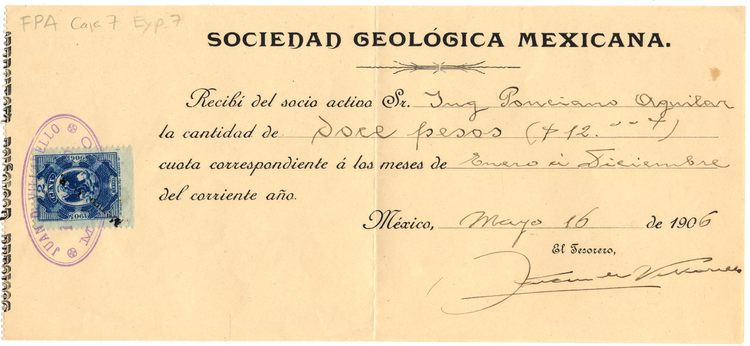 FPA Caja 7 Exp. 7
SOCIEDAD GEOLÓGICA MEXICANA.
Recibí del socio activo Sr. Ing Ponciano Aguilar
la cantidad de Doce pesos ($12.
cuota correspondiente á los meses de Enero á Diciembre
del corriente año.
México, Mayo 16 de 1906
El Tesorero,
Juan de Villarello
JUAN D. VILLARELLO